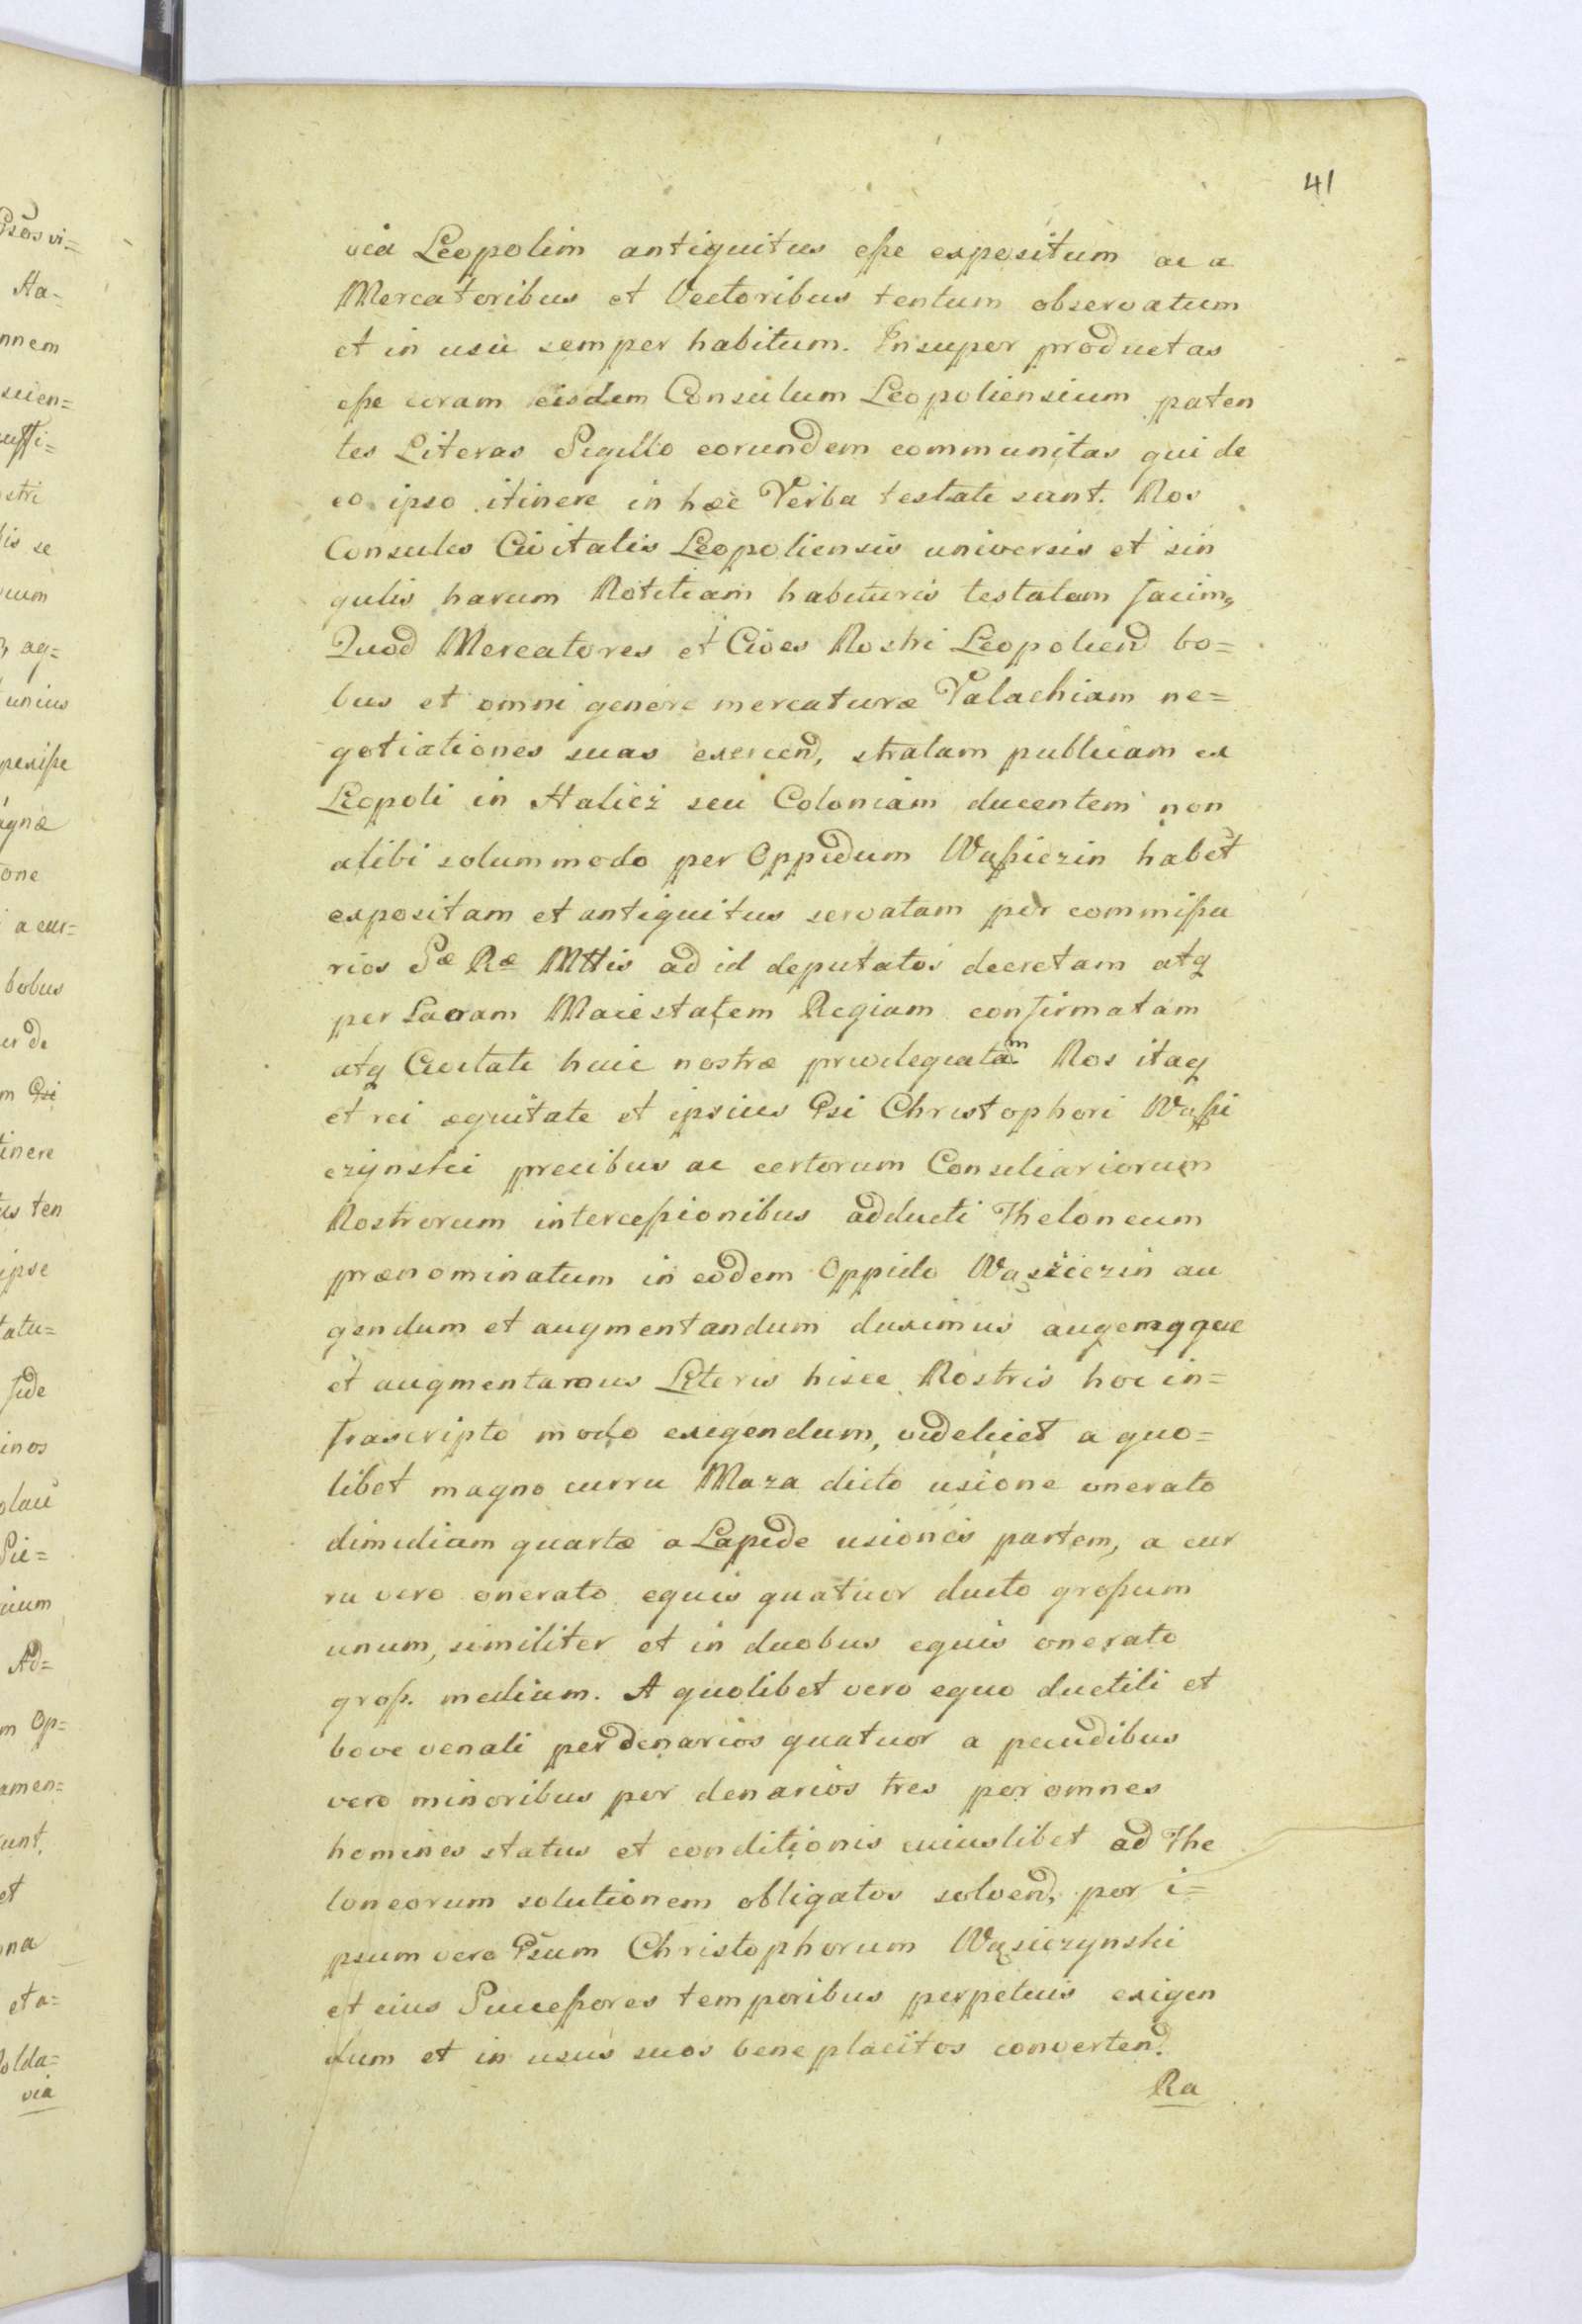 41
via Leopolim antiquitus eſse expositum ac a
Mercatoribus et Vectoribus tentum observatum
et in usu semper habitum. Insuper productas
eſse coram eisdem Consulum Leopoliensium paten
tes Literas Sigillo eorundem communitas qui de
eo ipso itinere in hæc Verba testati sunt. Nos
Consules Civitatis Leopoliensis universis et sin
gulis harum Notitiam habituris testatam facim9
Quod Mercatores et Cives Nostri Leopoliend bo=
bus et omni genere mercaturæ Valachiam ne=
gotiationes suas exercend, stratam publicam ex
Leopoli in Halicz seu Coloniam ducentem non
alibi solummodo per Oppidum Waſsiczin habet
expositam et antiquitus servatam per commiſsa
rios Sæ Ræ Mttis ad id deputatos decretam atq
per Sacram Maiestatem Regiam confirmatam
atq Civitati huic nostræ privilegiatam. Nos itaq
et rei æquitate et ipsius Gsi Christophori Waſsi
czynski precibus ac certorum Consiliariorum
Nostrorum interceſsionibus adducti Theloneum
prænominatum in eodem Oppido Wasiiczin au
gendum et augmentandum duximus augemqque
et augmentamus Literis hisce Nostris hoc in=
frascripto modo exigendum, videlicet a quo=
libet magno curru Maza dicto usione onerato
dimidiam quartæ a Lapide usionis partem, a cur
ru vero onerato equis quatuor ducto groſsum
unum, similiter et in duobus equis onerato
groſs. medium. A quolibet vero equo ductili et
bove venali per denarios quatuor a pecudibus
vero minoribus per denarios tres per omnes
homines status et conditionis cuiuslibet ad The
loneorum solutionem obligatos solvend, per i=
psum vero Gsum Christophorum Wasiczynski
et eius Succeſsores temporibus perpetuis exigen
dum et in usus suos beneplacitos convertend.
Ra